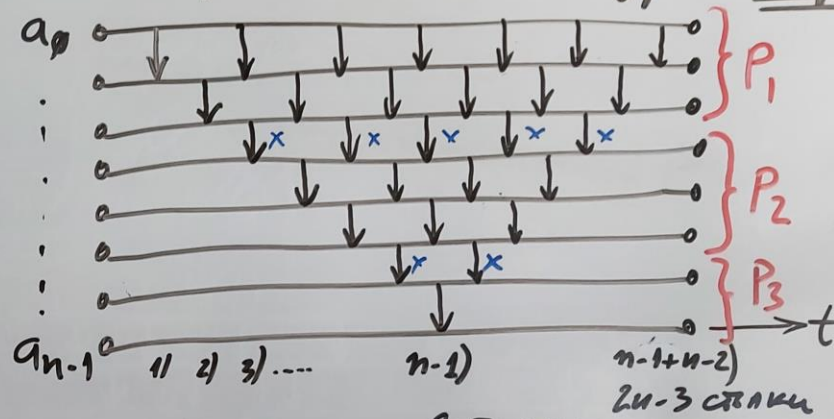 a₀
P₁
x x x x x
P₂
x x
P₃
t
aₙ₋₁ 1) 2) 3).... n-1) n-1+n-2)
2n-3 стъпки